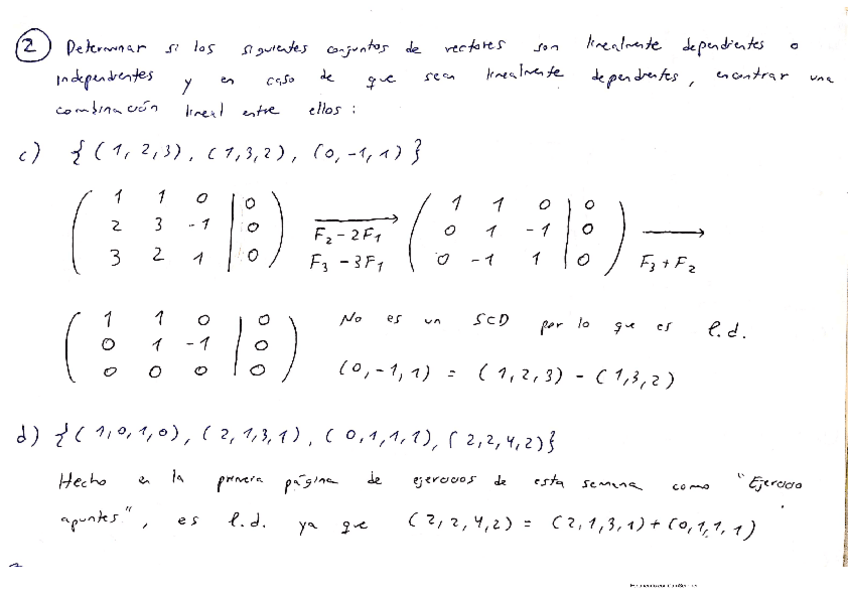 2 Determinar si los siguientes conjuntos de vectores son linealmente dependientes o
independientes y en caso de que sean linealmente dependientes, encontrar una
combinación lineal entre ellos:
c) {(1, 2, 3), (1, 3, 2), (0, -1, 1)}
( 1 1 0 | 0 ) ( 1 1 0 | 0 )
( 2 3 -1 | 0 ) F2 - 2F1 → ( 0 1 -1 | 0 ) →
( 3 2 1 | 0 ) F3 - 3F1 ( 0 -1 1 | 0 ) F3 + F2
( 1 1 0 | 0 ) No es un SCD por lo que es l.d.
( 0 1 -1 | 0 )
( 0 0 0 | 0 ) (0, -1, 1) = (1, 2, 3) - (1, 3, 2)
d) {(1, 0, 1, 0), (2, 1, 3, 1), (0, 1, 1, 1), (2, 2, 4, 2)}
Hecho en la primera página de ejercicios de esta semana como "Ejercicio
apuntes", es l.d. ya que (2, 2, 4, 2) = (2, 1, 3, 1) + (0, 1, 1, 1)